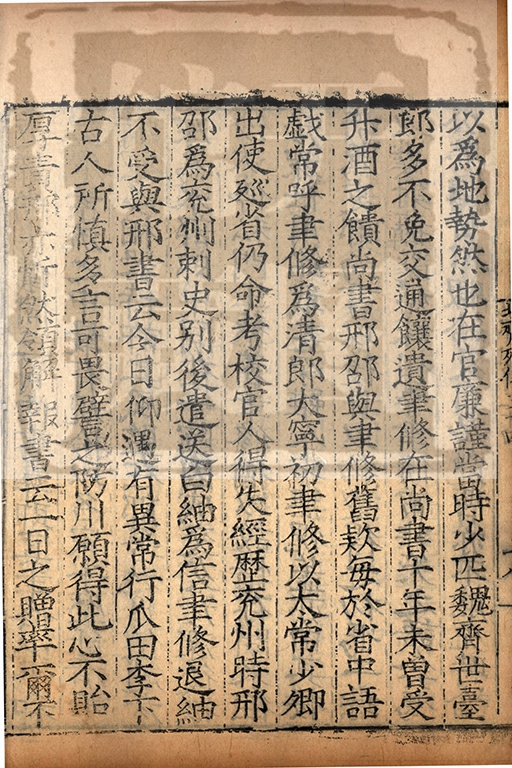 以爲地勢然也在官廉謹當時少匹魏齊世臺
郎多不免交通饟遺聿修在尚書十年未曾受
升酒之饋尚書邢邵與聿修舊欵每於省中語
戱常呼聿修爲清郎大寧初聿修以太常少卿
出使廵省仍命考校官人得失經歷兖州時邢
邵爲兖州刺史别後遣送白紬爲信聿修退紬
不受與邢書云今日仰遇有異常行瓜田李下
古人所愼多言可畏譬之防川願得此心不貽
厚責邢亦忻然領解報書云一日之贈率爾不